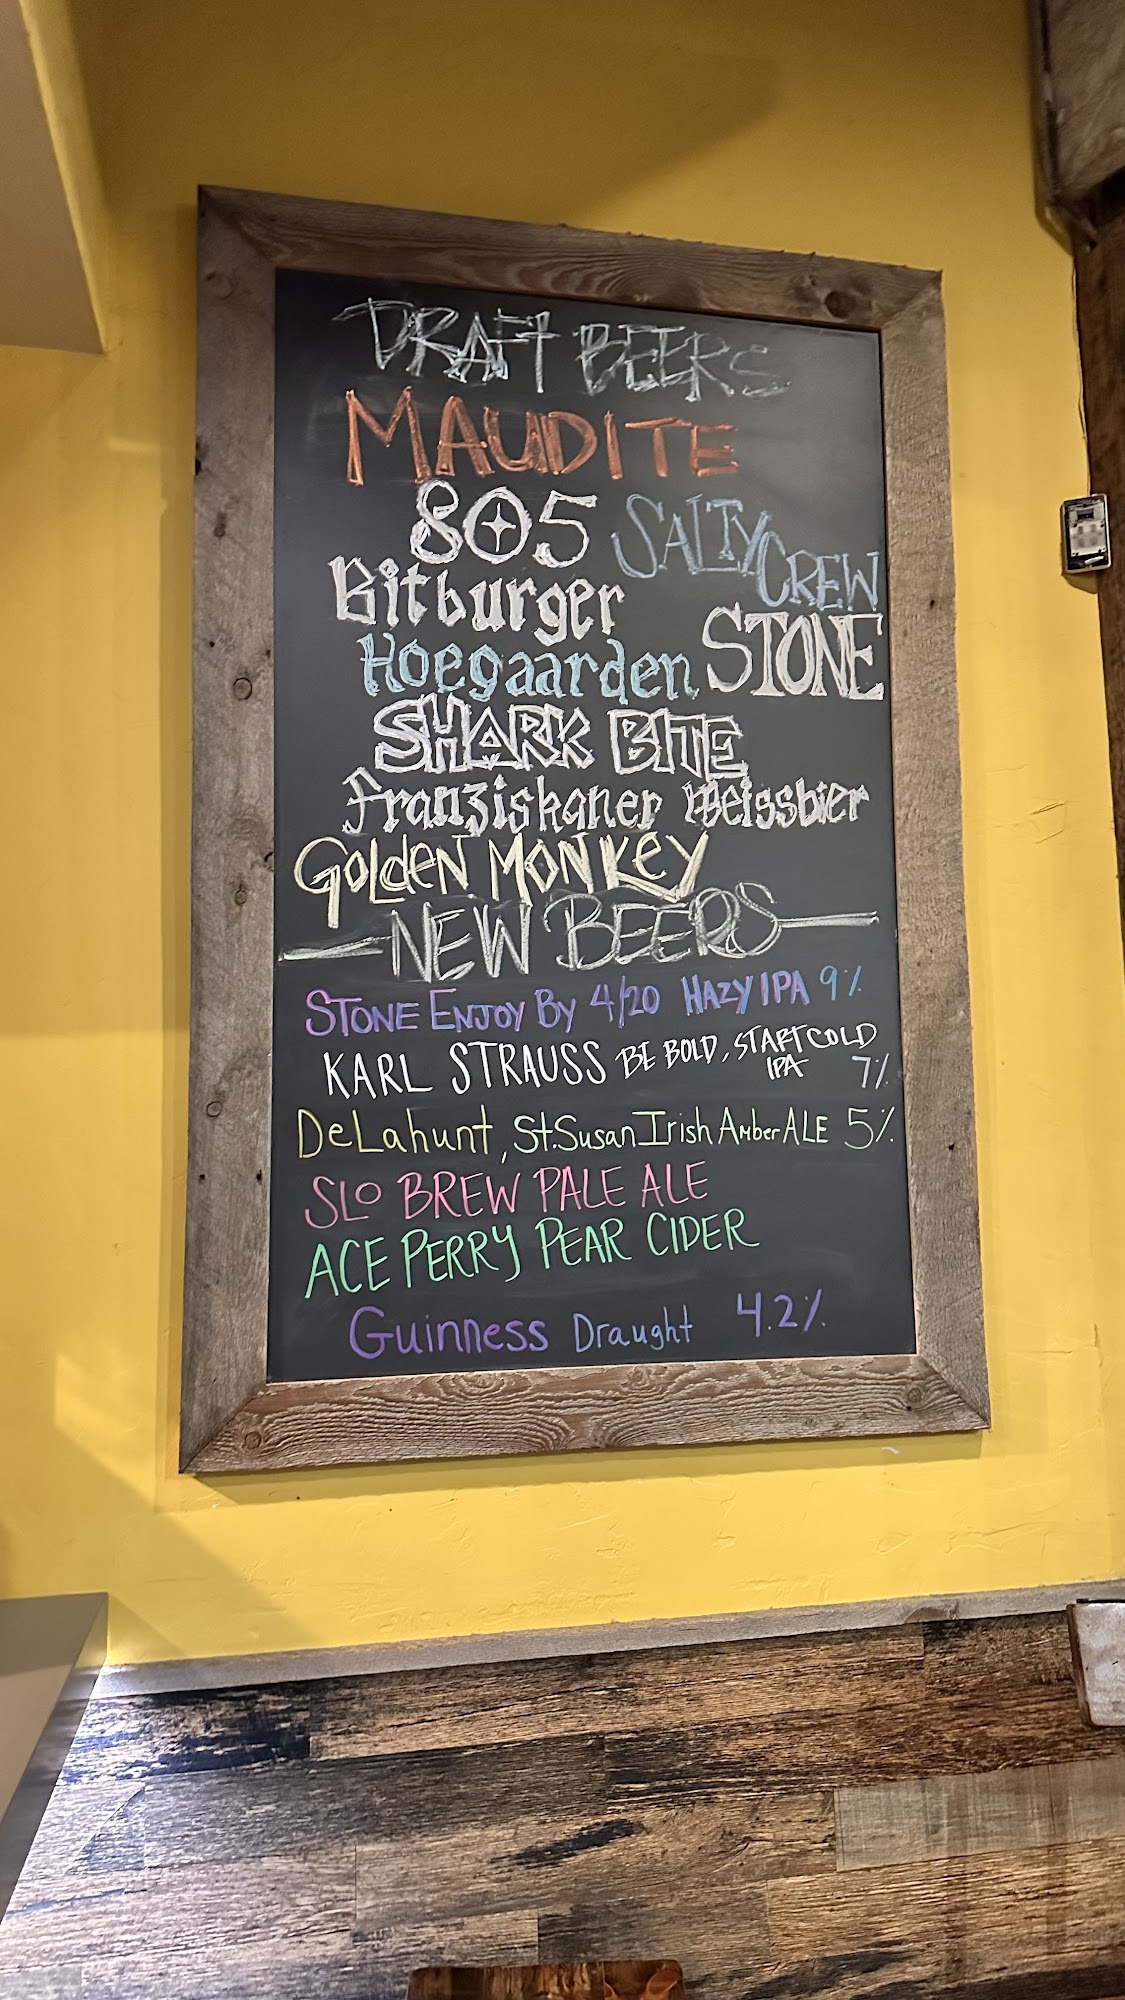 DRAFT BEERS
MAUDITE
805 SALTY CREW
Bitburger
Hoegaarden STONE
SHARK BITE
Franziskaner Weissbier
GOLdeN MONKEY
NEW BEERS
STONE ENJOY BY 4/20 HAZY IPA 9%
KARL STRAUSS BE BOLD, START COLD IPA 7%
DeLahunt, St. Susan Irish Amber ALE 5%
SLO BREW PALE ALE
ACE PERRY PEAR CIDER
Guinness Draught 4.2%